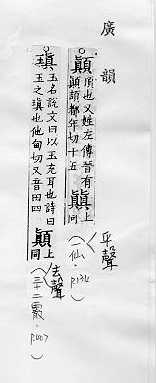 廣韻
顚 頂也又姓左傳晉有
顚頡都年切十五 顛 上同
平聲
(一仙・P.134)
瑱 玉名說文曰以玉充耳也詩曰
玉之瑱也他甸切又音田四 顚 上同
去聲
(三十二霰・P.407)